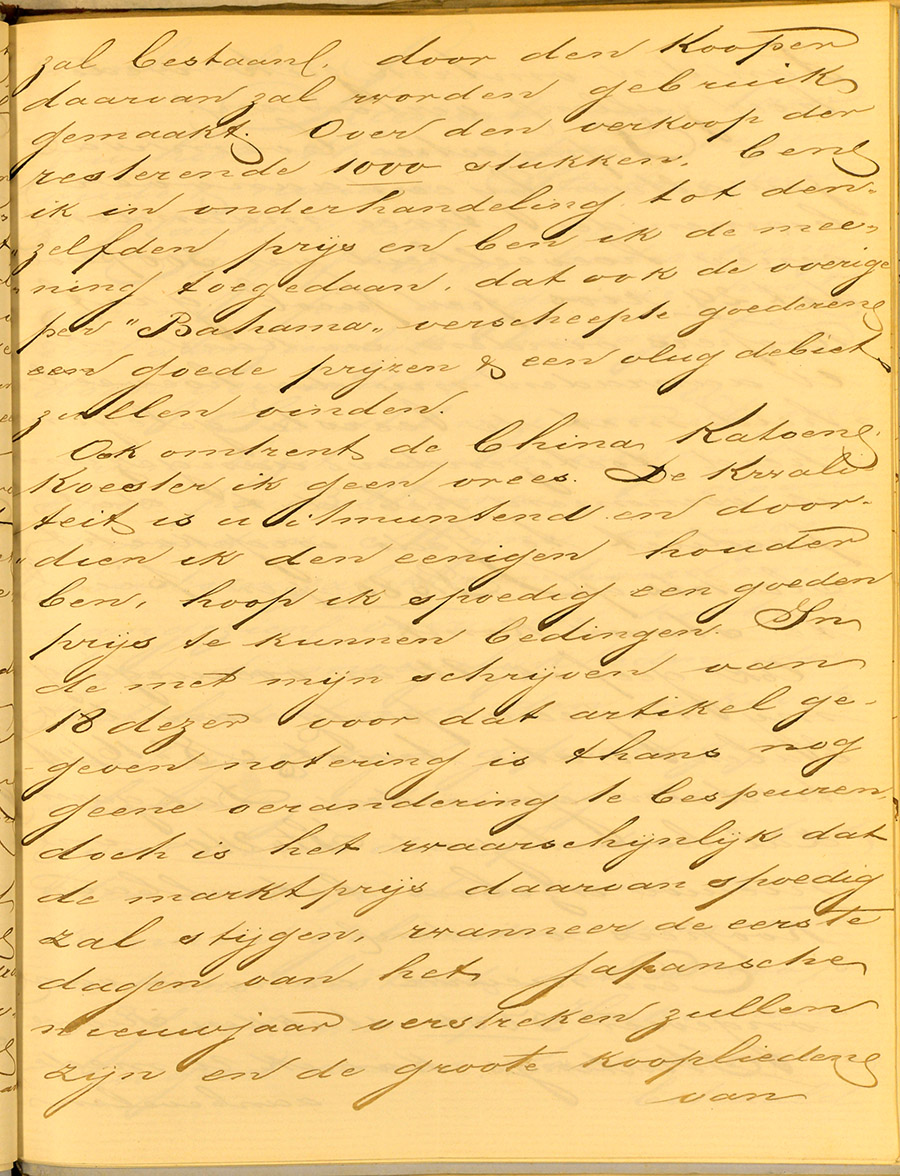 zal bestaan, door den Kooper
daarvan zal worden gebruik
gemaakt. Over den verkoop der
resterende 1000 stukken, ben
ik in onderhandeling tot den-
zelfden prijs en ben ik de mee-
ning toegedaan, dat ook de overige
per "Bahama" verscheepte goederen
een goede prijzen & een vlug debiet
zullen vinden.
Ook omtrent de China Katoen
Koester ik geen vrees. De Kwali
teit is uitmuntend en door-
dien ik den eenigen houder
ben, hoop ik spoedig een goeden
prijs te kunnen bedingen. In
de met mijn schrijven van
18 dezer voor dat artikel ge-
geven notering is thans nog
geene verandering te bespeuren,
doch is het waarschijnlijk dat
de marktprijs daarvan spoedig
zal stijgen, wanneer de eerste
dagen van het Japansche
nieuwjaar verstreken zullen
zijn en de groote kooplieden
van